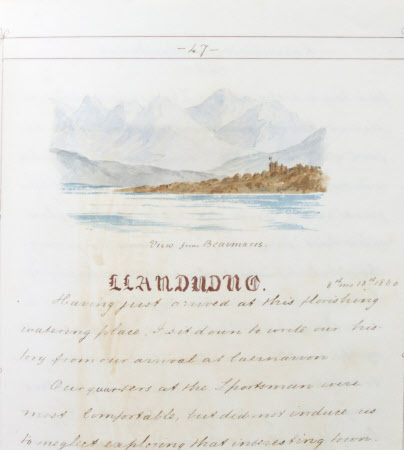 -47-
View from Beaumaris.
LLANDUDNO.
8th mo 18th 1860
Having just arrived at this flourishing
watering place, I sit down to write our his-
tory from our arrival at Caernarvon.
Our quarters at the Sportsman were
most comfortable, but did not induce us
to neglect exploring that interesting town.